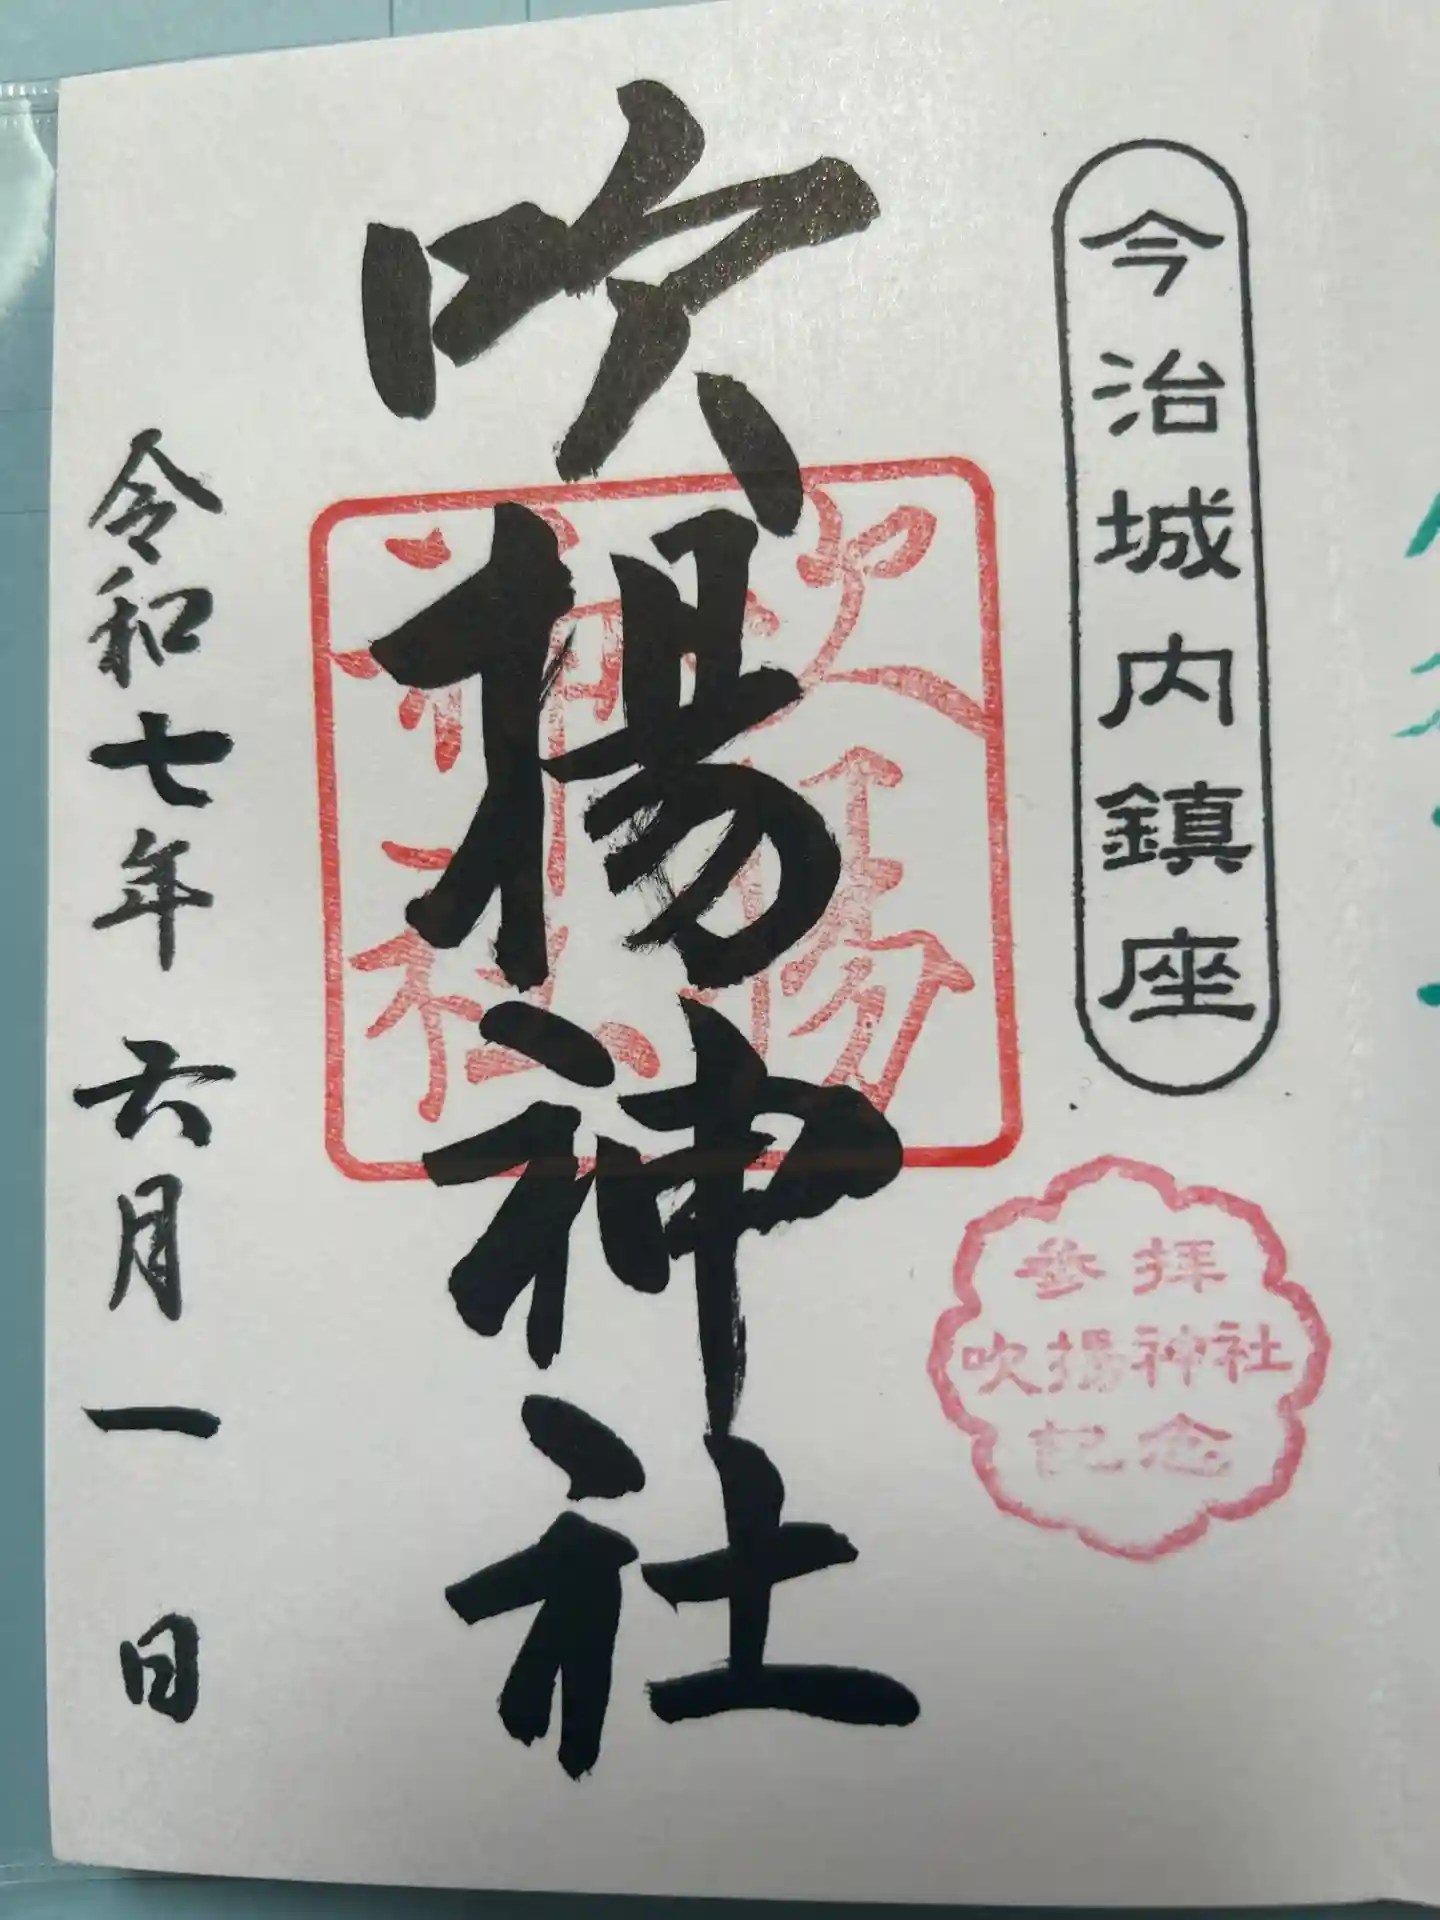 今治城内鎮座
参拝
吹揚神社
記念
吹揚神社
吹揚
神社
令和七年 六月一日